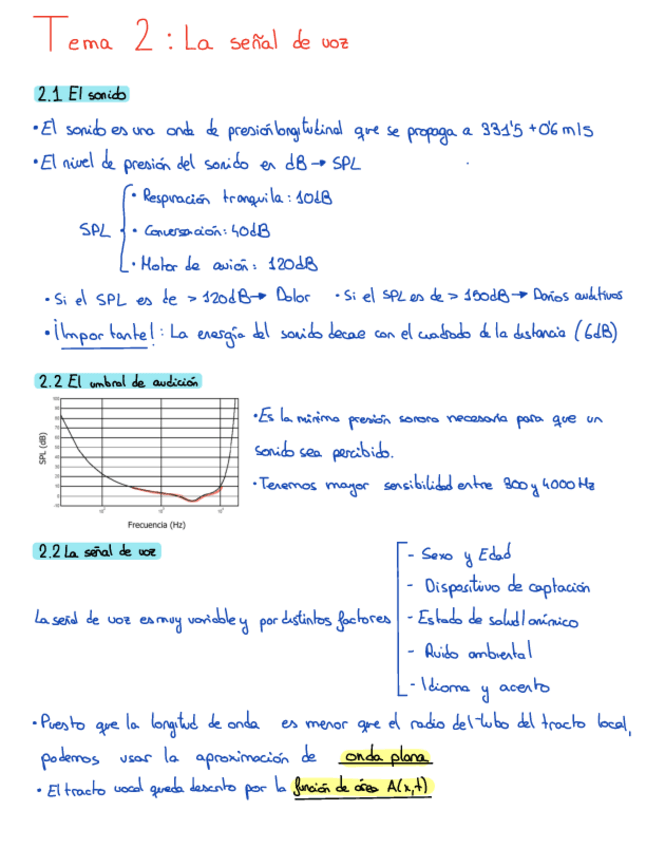 Tema 2: La señal de voz
2.1 El sonido
• El sonido es una onda de presión longitudinal que se propaga a 331'5 + 0'6 m/s
• El nivel de presión del sonido en dB → SPL
• Respiración tranquila: 10dB
SPL • Conversación: 40dB
• Motor de avión: 120dB
• Si el SPL es de > 120dB → Dolor • Si el SPL es de > 150dB → Daños auditivos
• ¡Importante!: La energía del sonido decae con el cuadrado de la distancia (6dB)
2.2 El umbral de audición
SPL (dB)
100
90
80
70
60
50
40
30
20
10
0
-10
10² 10³ 10⁴
Frecuencia (Hz)
• Es la mínima presión sonora necesaria para que un
sonido sea percibido.
• Tenemos mayor sensibilidad entre 800 y 4000 Hz
2.2 La señal de voz
- Sexo y Edad
- Dispositivo de captación
La señal de voz es muy variable y por distintos factores - Estado de salud/anímico
- Ruido ambiental
- Idioma y acento
• Puesto que la longitud de onda es menor que el radio del tubo del tracto local,
podemos usar la aproximación de onda plana
• El tracto vocal queda descrito por la función de área A(x,t)